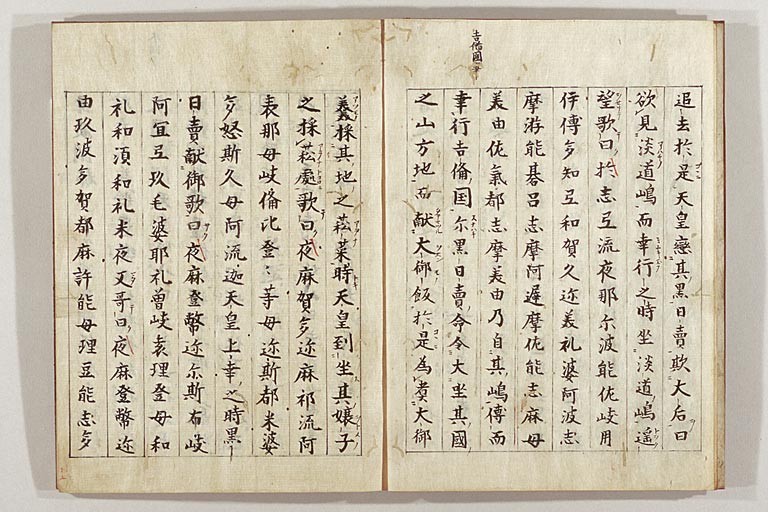 吉俻國
追去於是天皇戀其黒日賣欺大后曰
欲見淡道嶋而幸行之時坐淡道嶋遥
望歌曰於志弖流夜那尓波能佐岐用
伊傳多知弖和賀久迩美礼婆阿波志
摩淤能碁呂志摩阿遅摩佐能志麻母
美由佐氣都志摩美由乃自其嶋傳而
幸行吉俻国尓黒日賣命令大坐其國
之山方地而献大御飯於是為煑大御
羹採其地之菘菜時天皇到坐其嬢子
之採菘處歌曰夜麻賀多迩麻祁流阿
袁那母岐俻比登々等母迩斯都米婆
多怒斯久母阿流迦天皇上幸之時黒
日賣献御歌曰夜麻登幣迩尓斯布岐
阿宜弖玖毛婆那礼曽岐袁理登母和
礼和湏礼米夜又哥曰夜麻登幣迩
由玖波多賀都麻許能母理豆能志多